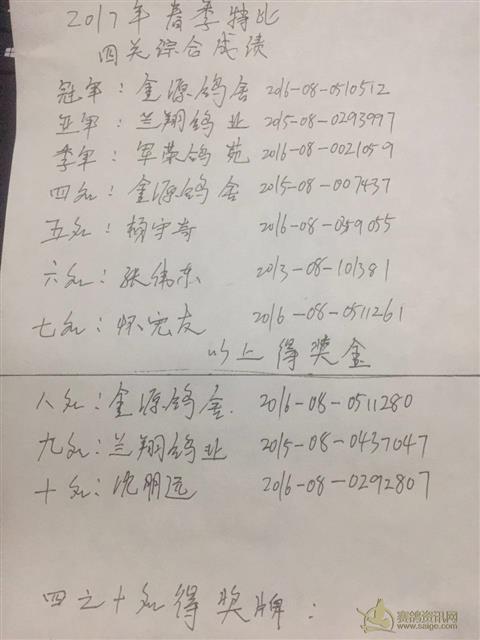 2017年春季特比
四关综合成绩
冠军：金源鸽舍 2016-08-0510512
亚军：兰翔鸽业 2015-08-0293997
季军：军荣鸽苑 2016-08-0021059
四名：金源鸽舍 2015-08-007437
五名：杨守奇 2016-08-059055
六名：张伟东 2013-08-101381
七名：怀宪友 2016-08-0511261
以上得奖金
八名：金源鸽舍. 2016-08-0511280
九名：兰翔鸽业 2015-08-0437047
十名：沈明远 2016-08-0292807
四之十名得奖牌：
赛鸽资讯网
www.saige.com